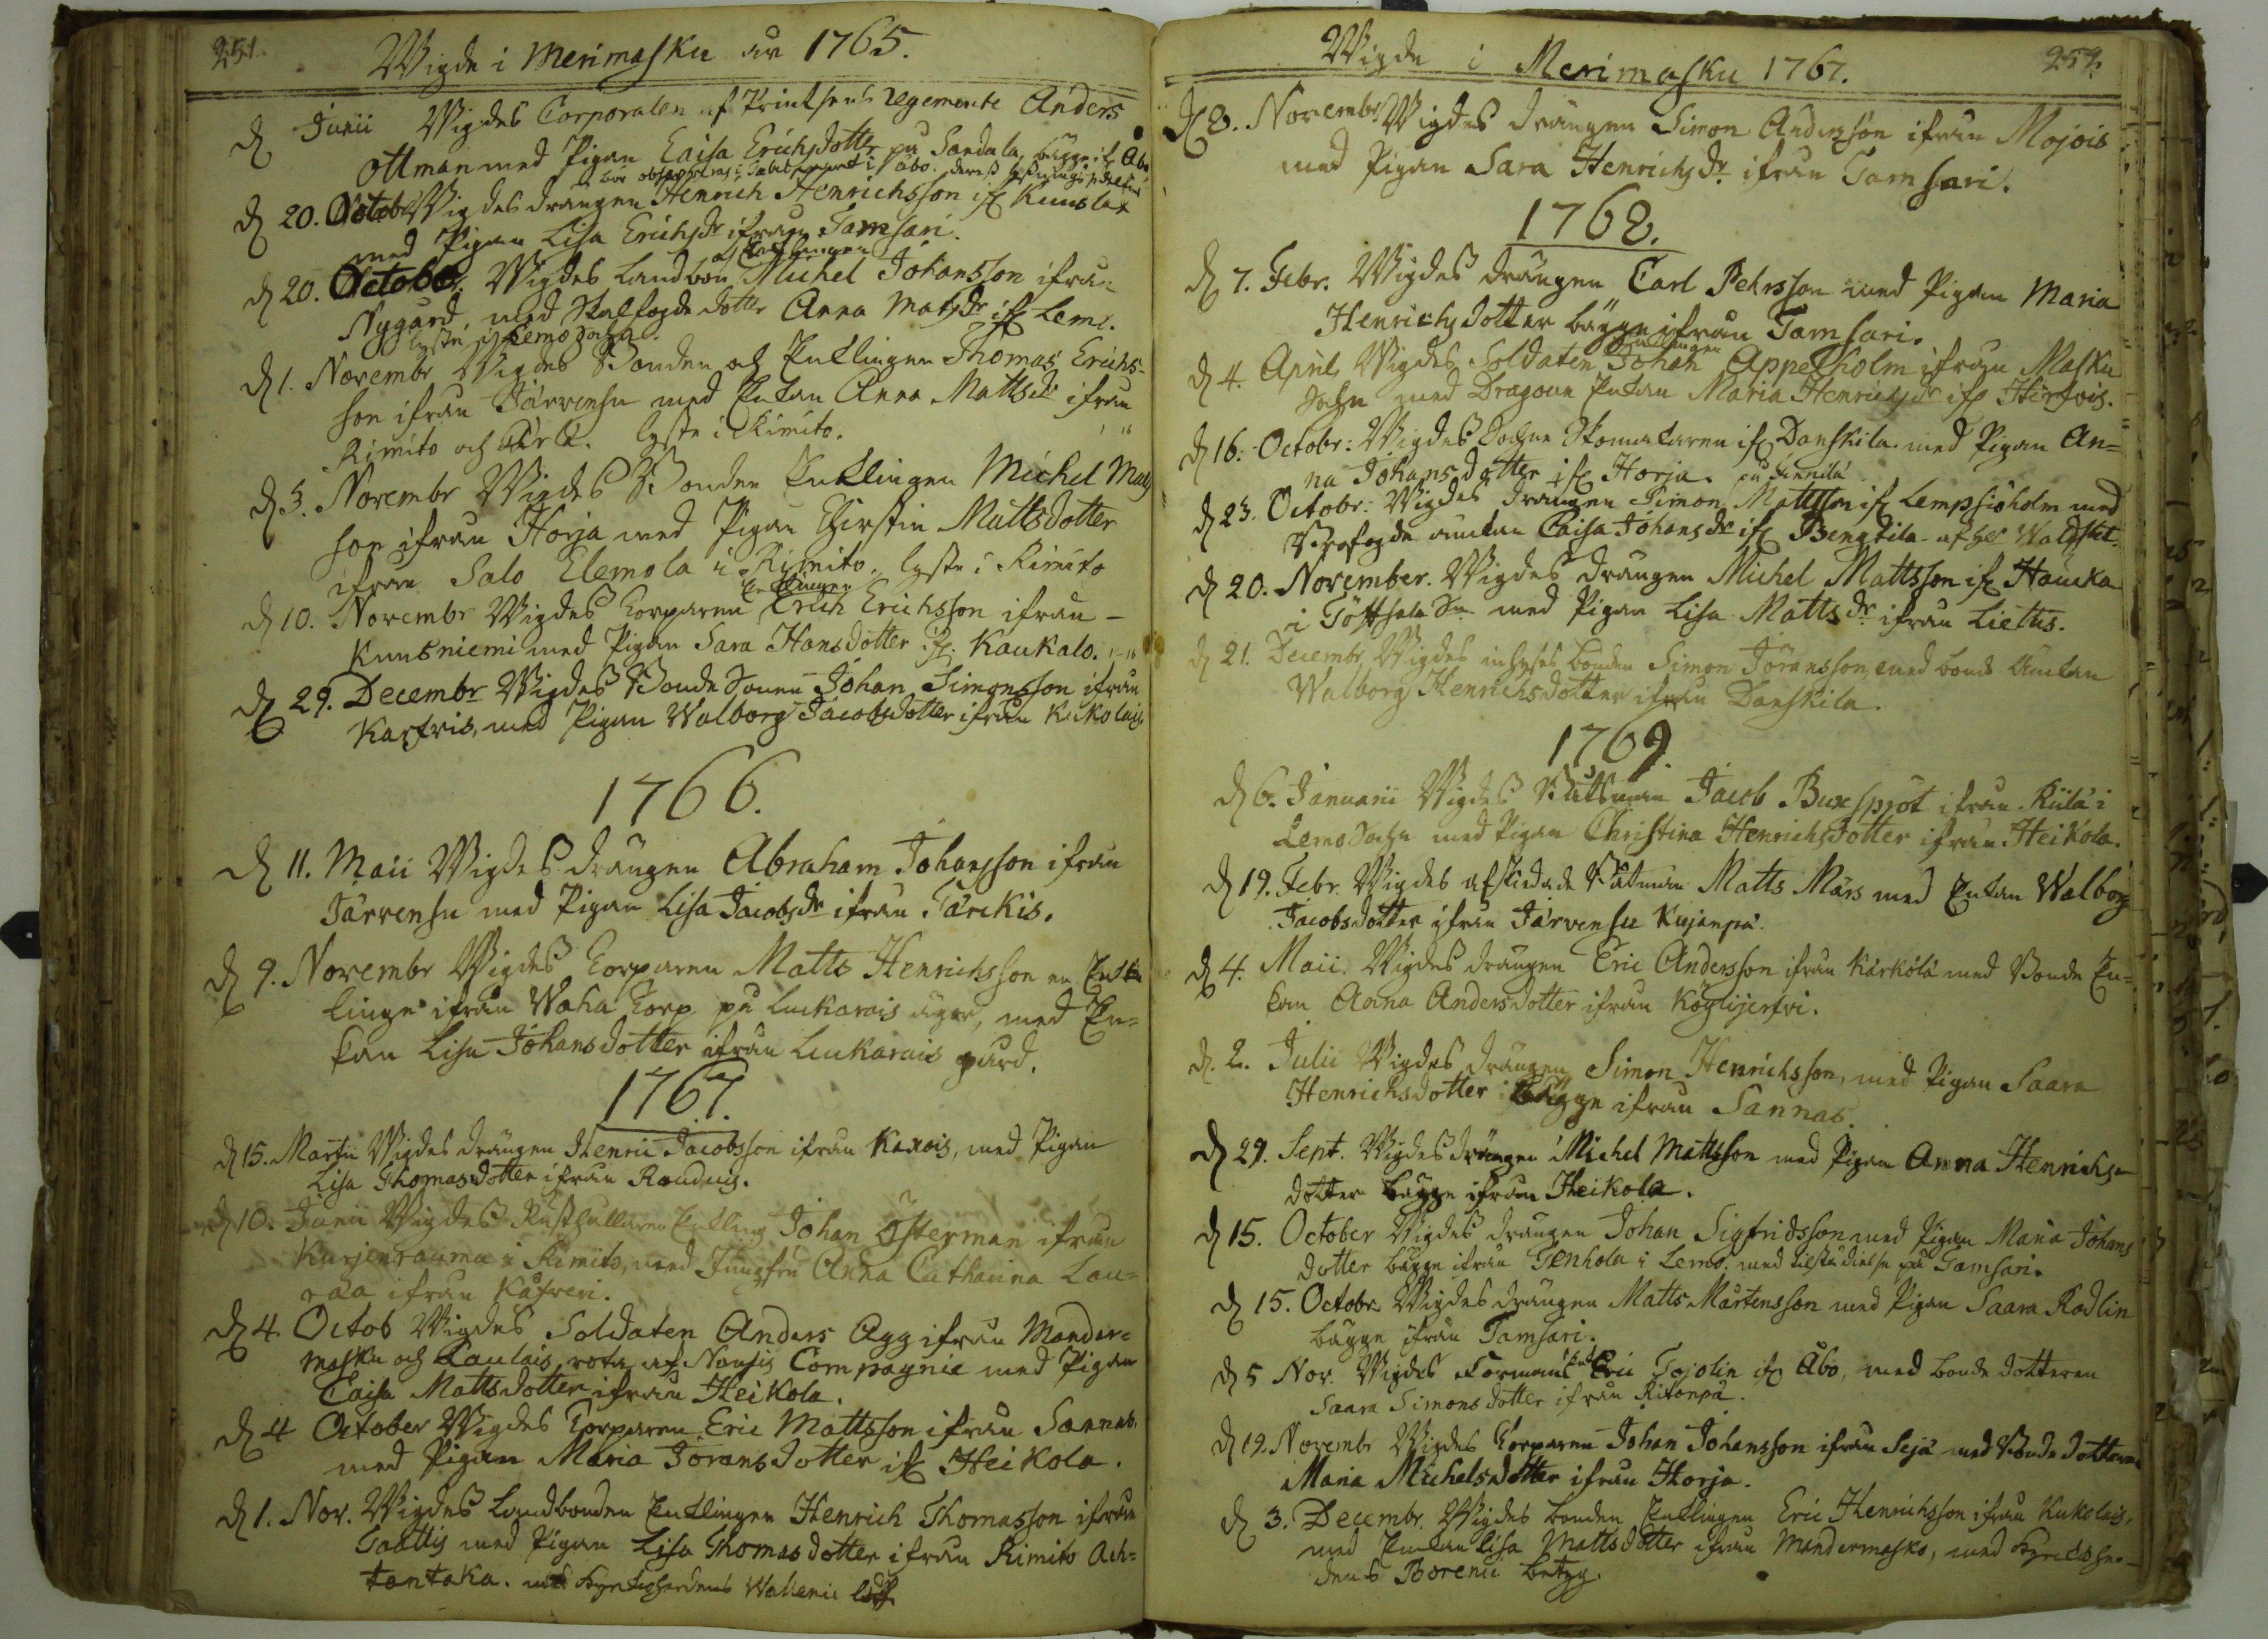 251.
Wigde i Merimasku år 1765.
d Junii Wigdes Corporalen af Printsens regemente Anders
Ottman med Pigan Caisa Erichsdotter på Sandala, bägge if. Åbo
i Åbo.
d 20. October Wigdes drängen Henrich Henrichsson if. Kuuslax
med Pigan Lisa Erichsdr ifrån Tamsari.
Enklingen
d 20. October. Wigdes Landbon Michel Johansson ifrån
Nygård, med Skalfogde dotter Anna Matsdr if. Lemo.
lyste i Lemo Sochn.
d 1. Novembr Wigdes Bonden och Enklingen Thomas Erichs-
son ifrån Järvensu med Enkan Anna Mattsdr ifrån
Kimito och lyste i Kimito.
d 3. Novembr Wigdes Bonden Enklingen Michel Mats
son ifrån Horja med Pigan Chirstin Mattsdotter
ifrån Salo Elemola i Kimito. lyste i Kimito
Enklingen
d 10. Novembr Wigdes Torparen Erich Erichsson ifrån -
Kuusniemi med Pigan Sara Hansdotter if. Kaukalo.
d 29. Decembr Wigdes Bonde Sonen Johan Simonsson ifrån
Karfvis, med Pigan Walborg Jacobsdotter ifrån Kukolais
1766.
d 11. Maii Wigdes drängen Abraham Johansson ifrån
Järvensu med Pigan Lisa Jacobsdr ifrån Tärckis.
d 9. Novembr Wigdes Torparen Matts Henrichsson en Enk-
linge ifrån Waha Torp på Luckarais ägor, med En-
kan Lisa Johansdotter ifrån Luckarais gård.
1767.
d 15. Martii Wigdes drängen Henric Jacobsson ifrån Kaxois, med Pigan
Lisa Thomasdotter ifrån Rauduis.
d 10. Junii Wigdes Rusthållaren Enkling Johan Österman ifrån
Kurjenrauma i Kimito, med Jungfru Anna Catharina Lau-
ræa ifrån Kåfreri.
d 4. Octob Wigdes Soldaten Anders Agg ifrån Mander-
masku och Laulais rota af Nousis Compagnie med Pigan
Caisa Mattsdotter ifrån Heikola.
d 4 October Wigdes Torparen Eric Mattsson ifrån Sannas.
med Pigan Maria Joransdotter if. Heikola.
d 1. Nov. Wigdes Landbonden Enklingen Henrich Thomasson ifrån
Taattis med Pigan Lisa Thomasdotter ifrån Kimito Ach-
tantaka. med Kyrkoherdens Wallenii
Wigde i Merimasku 1767.
252.
d 8. Novembr Wigdes drängen Simon Andersson ifrån Mojois
med Pigan Sara Henrichsdr ifrån Tamsari.
1768.
d 7. Febr. Wigdes drängen Carl Pehrsson med Pigan Maria
Henrichsdotter bägge ifrån Tamsari.
Enklingen
d 4. April Wigdes Soldaten Johan Appelholm ifrån Masku
Sochn med Dragoun Enkan Maria Henrichsdr if. Hirfvis.
d 16. Octobr: Wigdes Sochne Skomakaren if. Danskila med Pigan An-
na Johansdotter if. Horja. på Finnilä
d 23. Octobr: Wigdes drängen Simon Mattsson if. Lempsiöholm med
enkan Caisa Johansdr if. Bengtila
d 20. November. Wigdes drängen Michel Mattsson if. Haucka
i Töffsala Sn med Pigan Lisa Mattsdr ifrån Liettis.
d 21. Decembr Wigdes inhyses bonden Simon Jöransson, med bond Enkan
Walborg Henrichsdotter ifrån Danskila.
1769.
d 6. Januarii Wigdes Båtsman Jacob Buxsprot ifrån Riilä i
Lemo Sochn med Pigan Christina Henrichsdotter ifrån Heikola.
d 19. Febr. Wigdes afskedade Båtsman Matts Märs med Enkan Walborg
Jacobsdotter ifrån Järvensu Kujanpä.
d 4. Maii. Wigdes drängen Eric Andersson ifrån Kärkölä med Bonde En-
kan Anna Andersdotter ifrån Köylijerfvi.
d. 2. Julii Wigdes drängen Simon Henrichsson, med Pigan Saara
Henrichsdotter bägge ifrån Sannas.
d 29. Sept. Wigdes drängen Michel Mattsson med Pigan Anna Henrichs-
dotter bägge ifrån Heikola.
d 15. October Wigdes drängen Johan Sigfridsson med Pigan Maria Johans
dotter bägge ifrån Tenhola i Lemo. med på Tamsari.
d 15. Octobr Wigdes drängen Matts Mårtensson med Pigan Saara Radlin
bägge ifrån Tamsari.
d 5 Nov. Wigdes Formans Eric Tojolin if. Åbo, med bonde dotteren
Saara Simonsdotter ifrån Ritonpä.
d 19. Novembr Wigdes Torparen Johan Johansson ifrån Seja med Bonde dotteren
Maria Michelsdotter ifrån Horja.
d 3. Decembr. Wigdes bonden Enklingen Eric Henrichsson ifrån Kukolais,
med Enkan Lisa Mattsdotter ifrån Mandermasko, med Kyrckoher-
dens Borenii betyg.